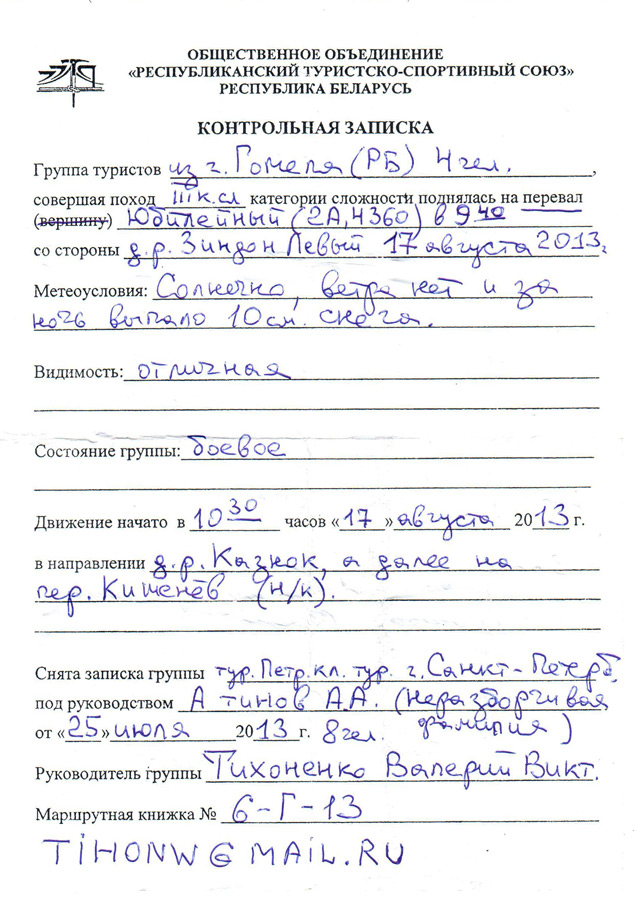 ОБЩЕСТВЕННОЕ ОБЪЕДИНЕНИЕ
«РЕСПУБЛИКАНСКИЙ ТУРИСТСКО-СПОРТИВНЫЙ СОЮЗ»
РЕСПУБЛИКА БЕЛАРУСЬ
КОНТРОЛЬНАЯ ЗАПИСКА
Группа туристов из г. Гомеля (РБ) 4 чел.,
совершая поход III к.сл категории сложности поднялась на перевал
(вершину) Юбилейный (2А, 4360) в 9 40
со стороны д.р. Зиндон Левый 17 августа 2013г.
Метеоусловия: Солнечно, ветра нет и за
ночь выпало 10 см. снега.
Видимость: отличная
Состояние группы: боевое
Движение начато в 10 30 часов «17» августа 2013 г.
в направлении д.р. Казнок, а далее на
пер. Кишенёв (н/к).
Снята записка группы тур. Петр. кл. тур. г. Санкт-Петерб.
под руководством А тинов А.А. (неразборчивая
от «25» июля 2013 г. 8 чел. фамилия)
Руководитель группы Тихоненко Валерий Викт.
Маршрутная книжка № 6-Г-13
TIHONW@MAIL.RU